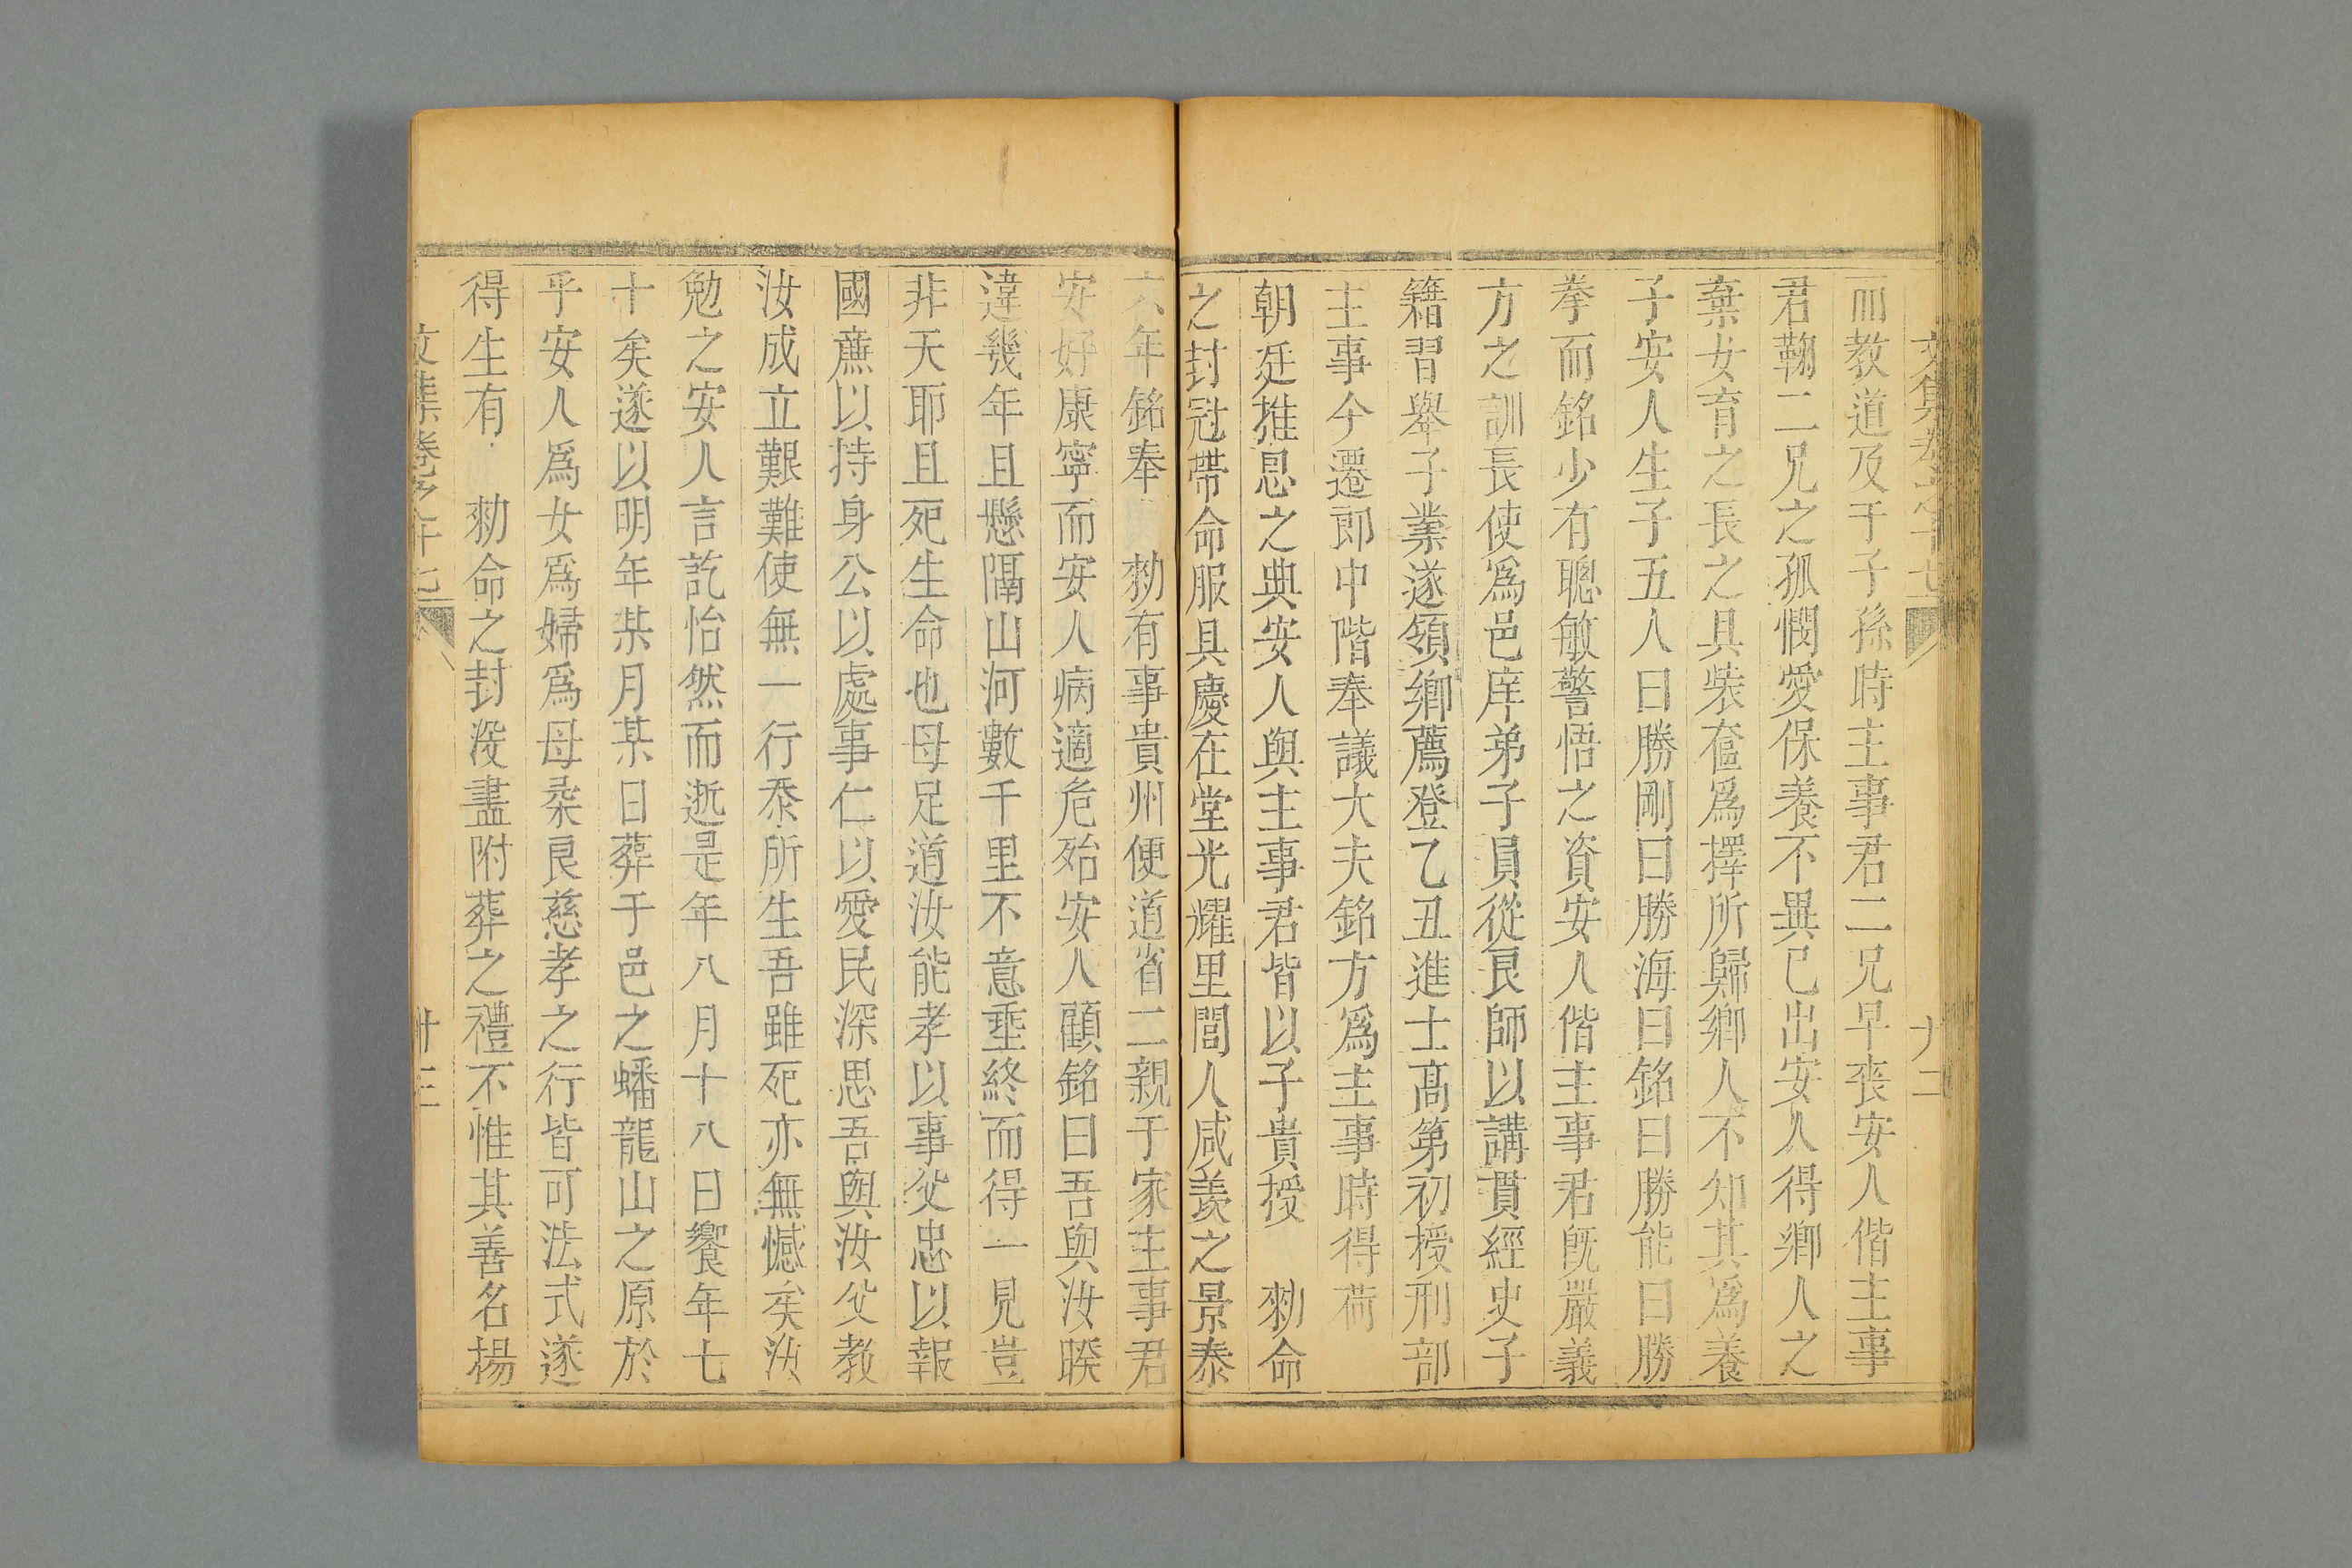 而教道及于子孫時主事君二兄早喪安人偕主事
君鞠二兄之孤憫愛保養不異已出安人得鄉人之
棄女育之長之具裝奩爲擇所歸鄉人不知其爲養
子安人生子五人曰勝剛曰勝海曰銘曰勝能曰勝
拳而銘少有聰敏警悟之資安人偕主事君旣嚴義
方之訓長使爲邑庠弟子員從良師以講貫經史子
籍習舉子業遂領鄉薦登乙丑進士髙第初授刑部
主事今遷郎中階奉議大夫銘方爲主事時得荷
朝廷推恩之典安人與主事君皆以子貴授　勑命
之封冠帶命服具慶在堂光耀里閭人咸羨之景泰
六年銘奉　勑有事貴州便道省二親于家主事君
安好康寧而安人病適危殆安人顧銘曰吾與汝暌
違幾年且懸隔山河數千里不意垂終而得一見豈
非天耶且死生命也母足道汝能孝以事父忠以報
國廉以持身公以處事仁以愛民深思吾與汝父教
汝成立艱難使無一行忝所生吾雖死亦無憾矣汝
勉之安人言訖怡然而逝是年八月十八日饗年七
十矣遂以明年某月某日葬于邑之蟠龍山之原於
乎安人爲女爲婦爲母柔良慈孝之行皆可法式遂
得生有　勑命之封沒盡附葬之禮不惟其善名揚
文集卷之十七
十三